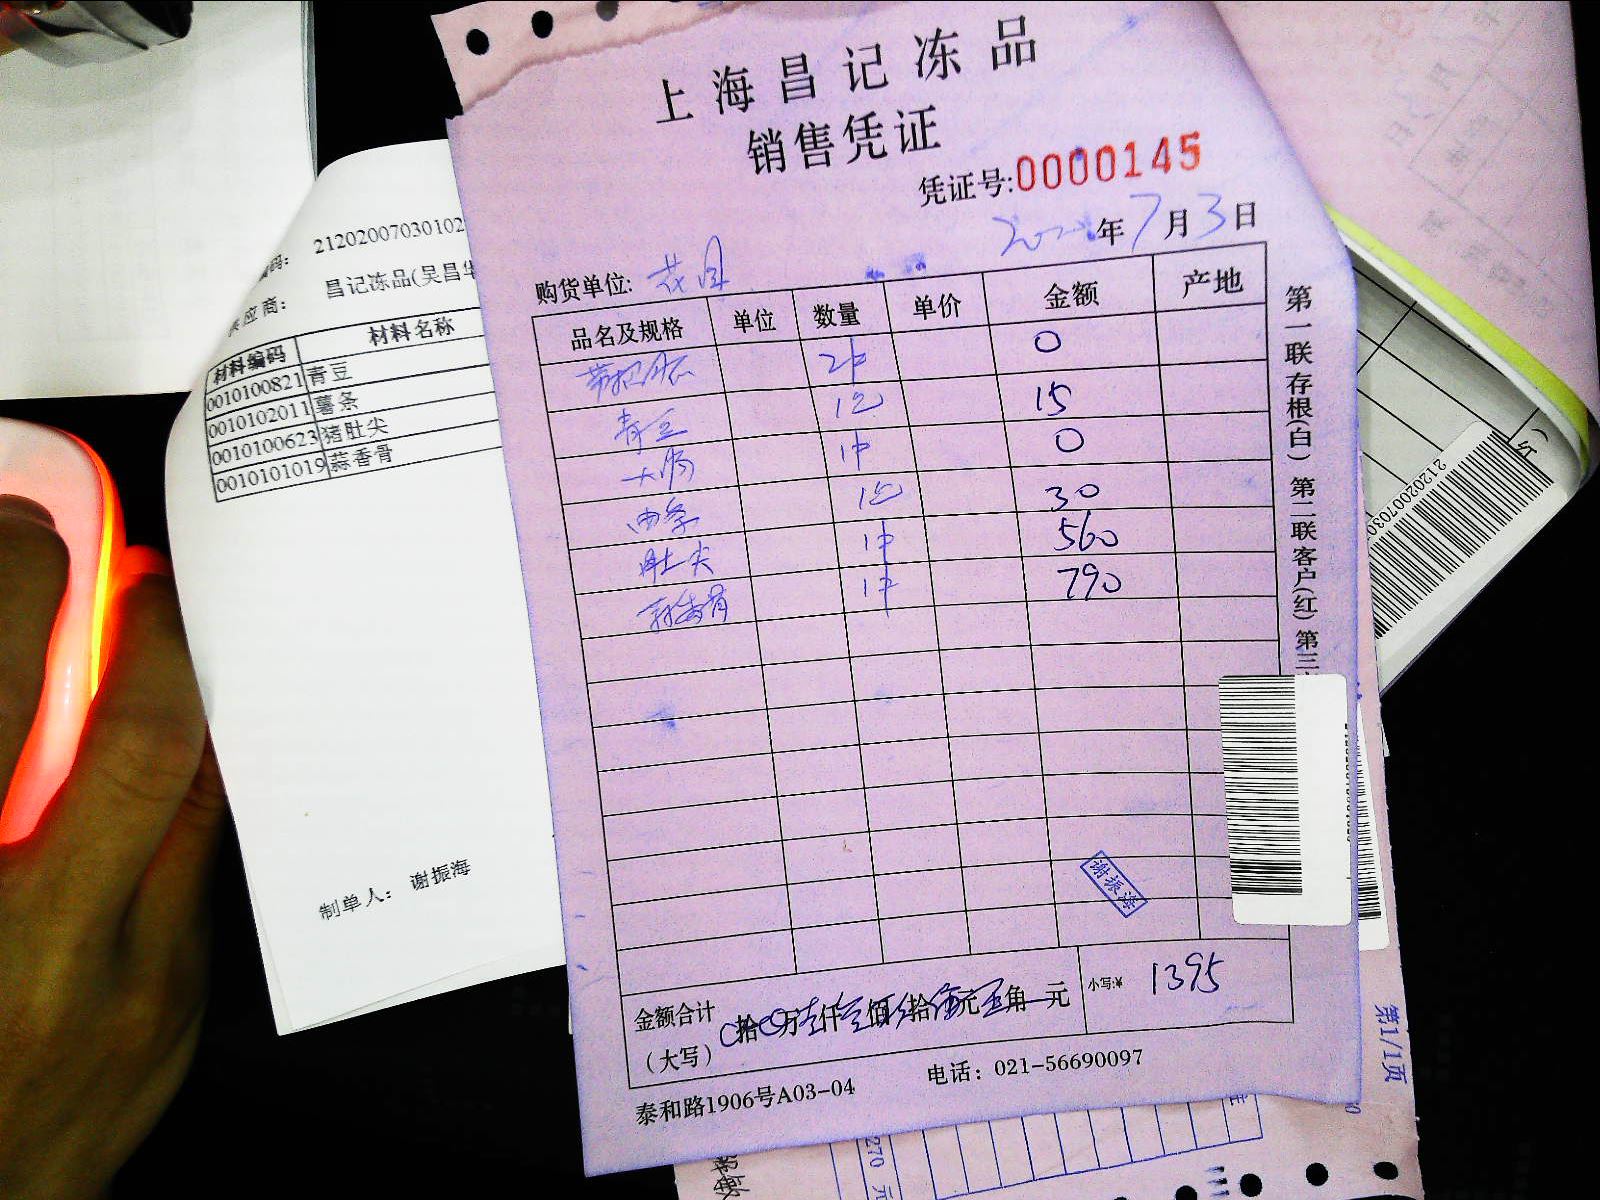 上海昌记冻品
销售凭证
凭证号:0000145
年7月3日
购货单位: 花园
品名及规格 单位 数量 单价 金额 产地
2件 0
青豆 1包 15
大肠 1件 0
1包 30
肚尖 1件 560
1件 790
谢振海
金额合计
(大写)
拾 万 仟 佰 拾 元 角 元
小写:¥ 1395
泰和路1906号A03-04 电话: 021-56690097
第一联存根(白) 第二联客户(红) 第三
编码: 21202007030102
供应商: 昌记冻品(吴昌华
材料编码 材料名称
0010100821 青豆
0010102011 薯条
0010100623 猪肚尖
0010101019 蒜香骨
制单人: 谢振海
2120200703
第1/1页
270 元